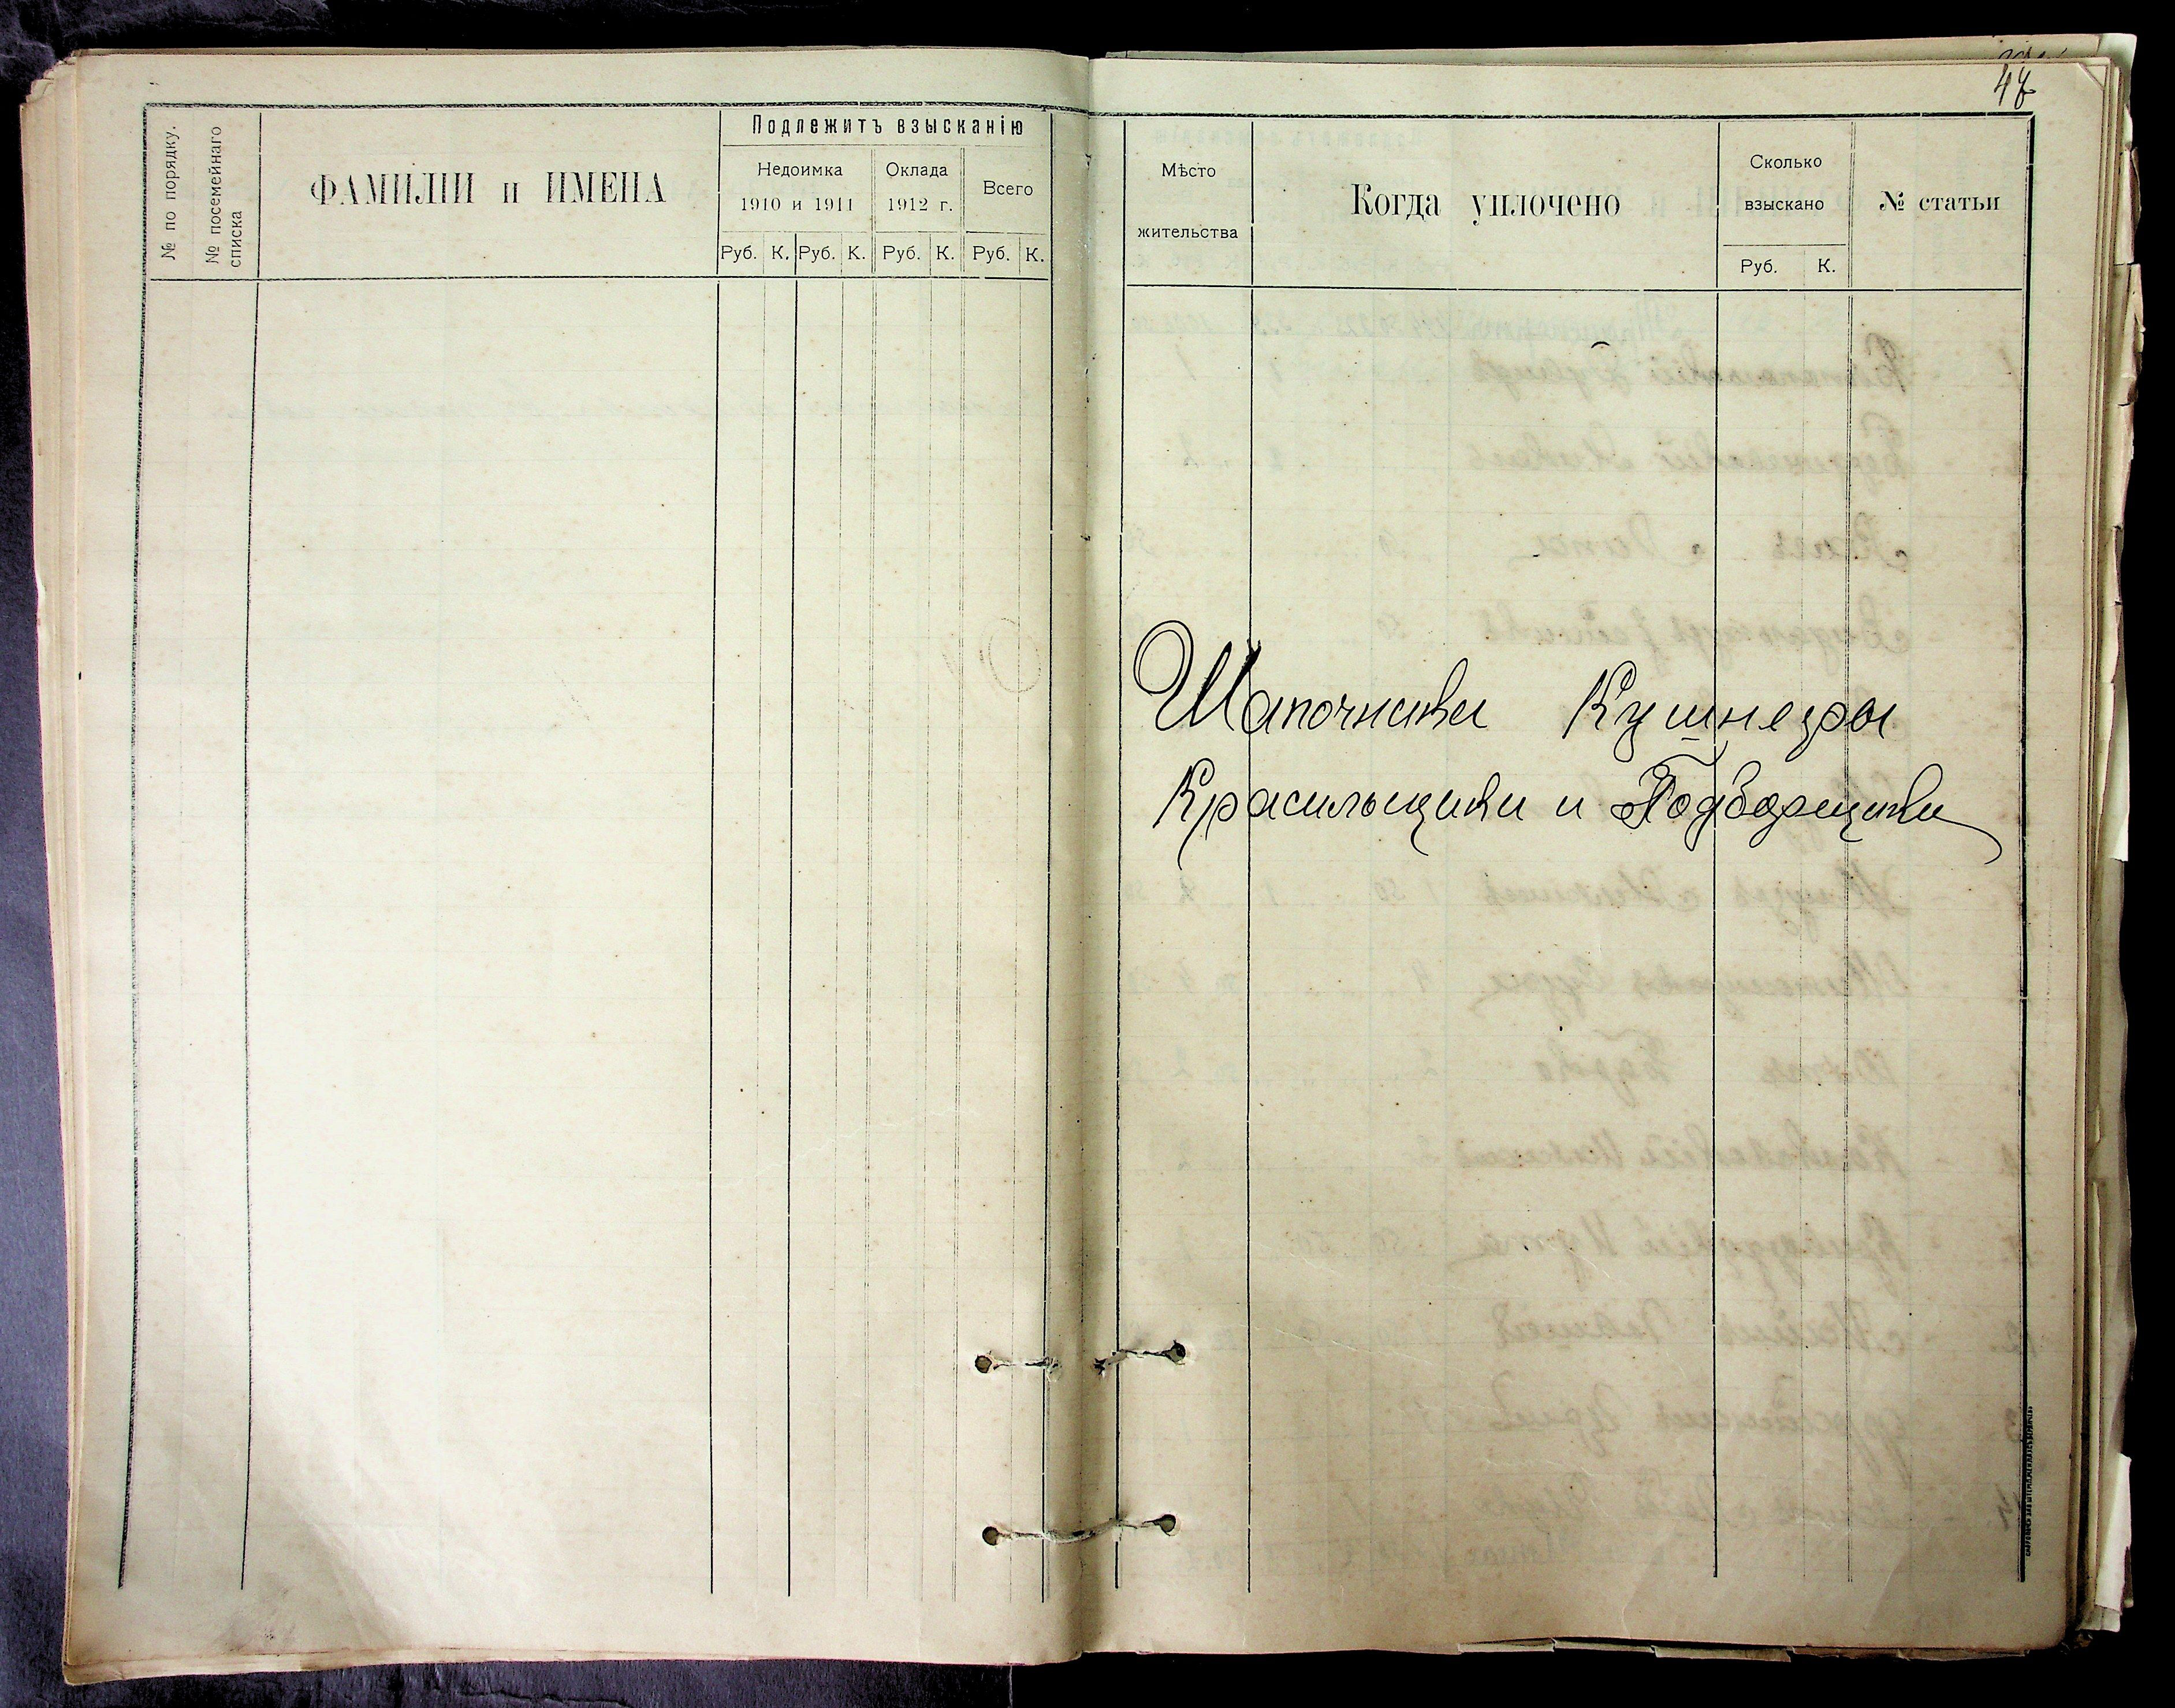 Подлежитъ взысканію
№ по порядку.
№ посемейнаго списка
ФАМИЛІИ и ИМЕНА
Недоимка
1910 и 1911
Оклада
1912 г.
Всего
Руб. К. Руб. К. Руб. К. Руб. К.
Мѣсто
жительства
Когда уплочено
Сколько
взыскано
Руб. К.
№ статьи
Шапочники Кушнеры
Красильщики и Подборщики